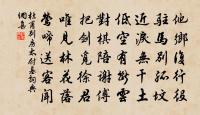 他鄉復行役
駐馬別孤墳
近淚無干土
低空有斷雲
對棋陪謝傅
把劍覓徐君
唯見林花落
鶯啼送客聞
杜甫別房太尉墓詞典
網集